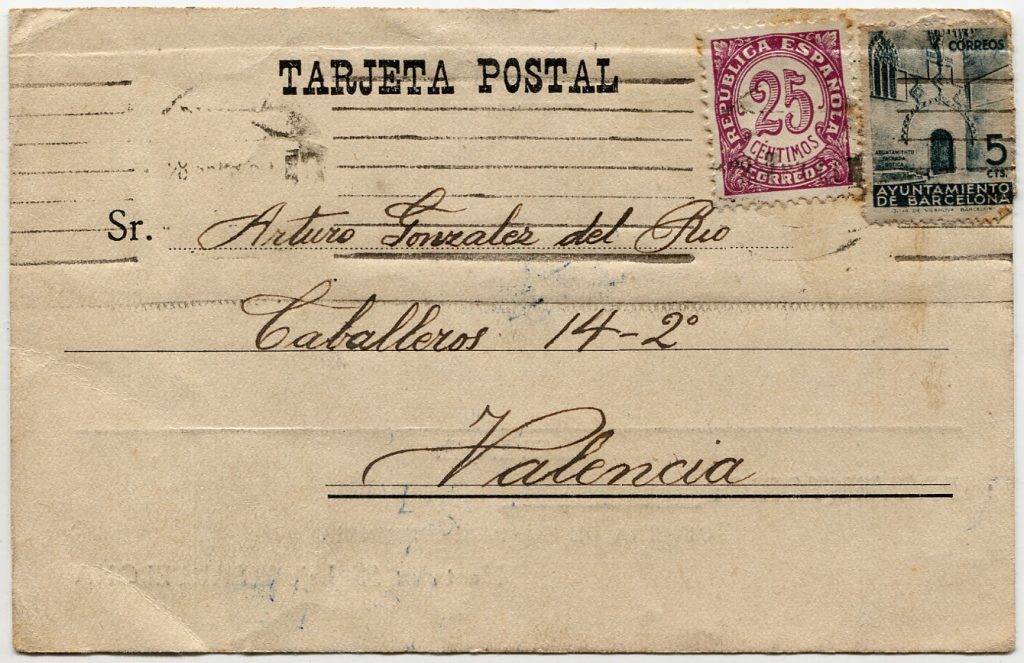 TARJETA POSTAL
REPUBLICA ESPAÑOLA
25
CÉNTIMOS
CORREOS
CORREOS
5
CTS.
AYUNTAMIENTO
DE BARCELONA
Sr. Arturo Gonzalez del Rio
Caballeros 14-2º
Valencia